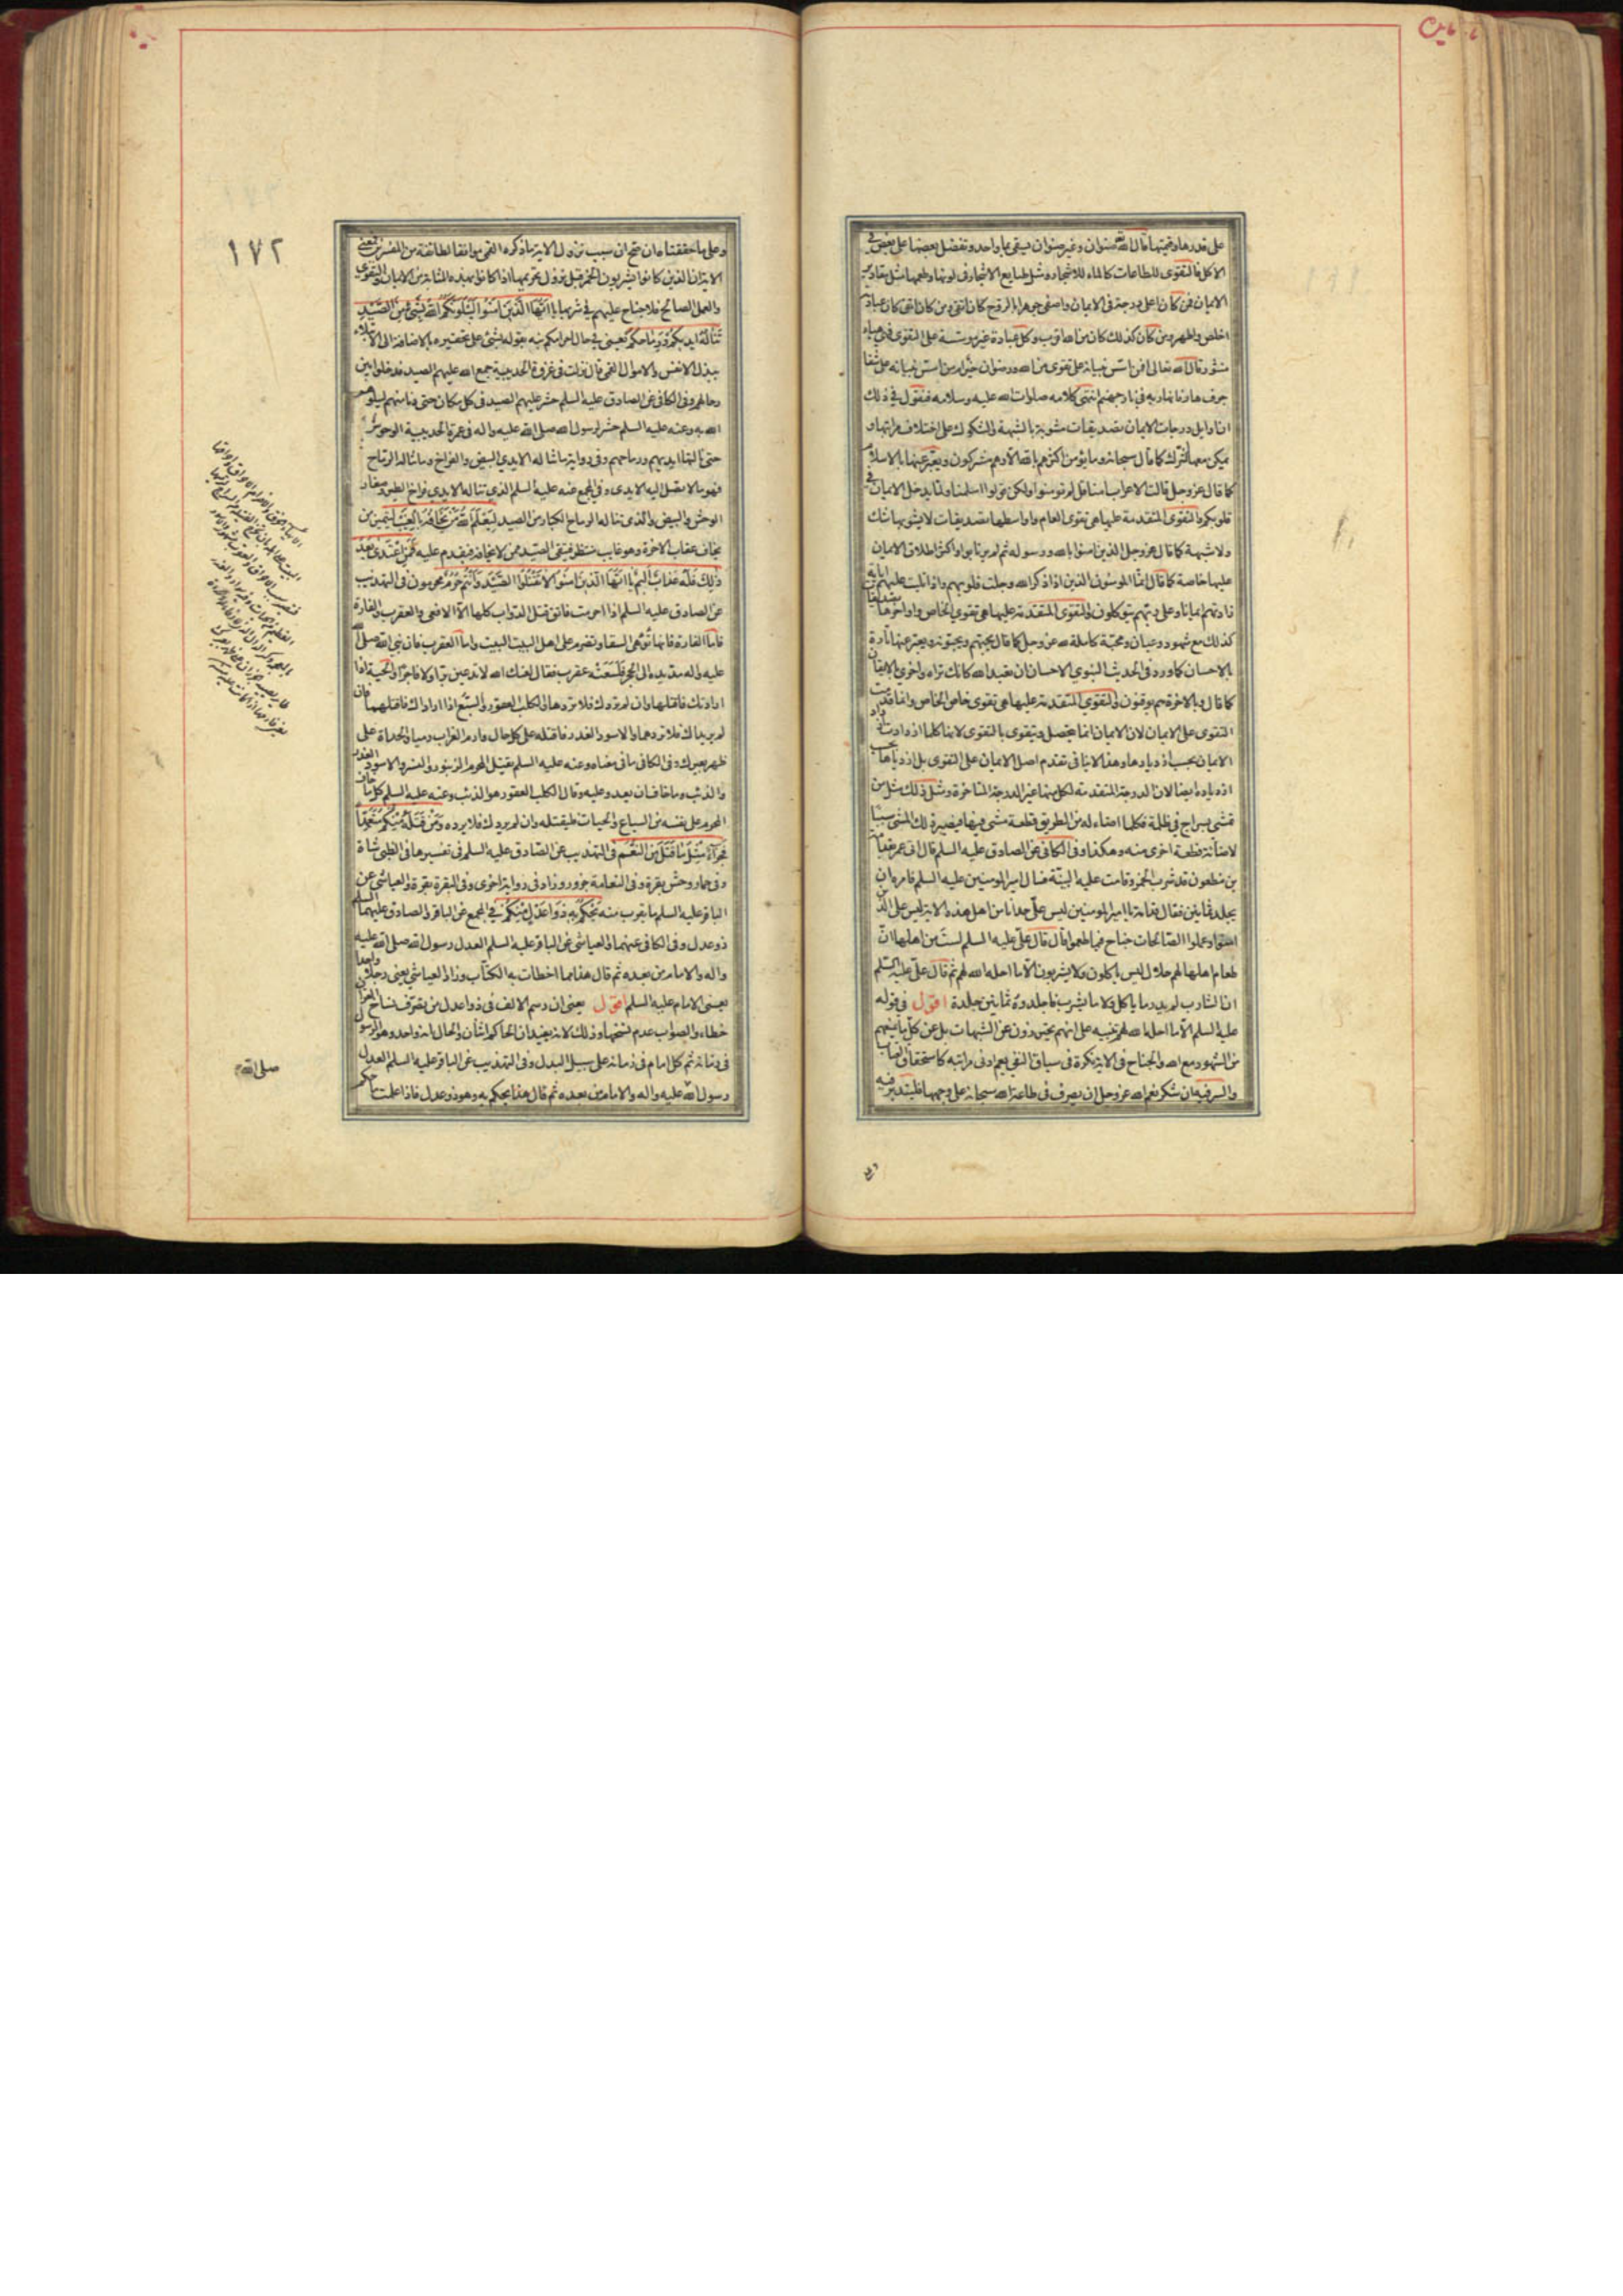 على قدرها وقيمتها قال الله صنوان وغير صنوان يسقى بماء واحد ونفضل بعضها على بعض في
الاكل فالتقوى للطاعات كالماء للاشجار ومثل طبايع الاشجار في لونها وطعمها مثل مقادير
الايمان فمن كان اعلى درجة في الايمان واصفى جوهرا بالروح كان اتقى ومن كان اتقى كان عبادته
اخلص واطهر ومن كان كذلك كان من الله اقرب وكل عبادة غير مؤسسة على التقوى فهي هباء
منثور قال الله تعالى افمن اسس بنيانه على تقوى من الله ورضوان خير ام من اسس بنيانه على شفا
جرف هار فانهار به في نار جهنم انتهى كلامه صلوات الله عليه وسلامه فنقول في ذلك
ان اوايل درجات الايمان تصديقات مشوبة بالشبهة والشكوك على اختلاف مراتبها و
يمكن معها الشرك كما قال سبحانه وما يؤمن اكثرهم بالله الا وهم مشركون ويعبر عنها بالاسلام
كما قال عز وجل قالت الاعراب امنا قل لم تؤمنوا ولكن قولوا اسلمنا ولما يدخل الايمان في
قلوبكم والتقوى المتقدمة عليها هي تقوى العام واواسطها تصديقات لا يشوبها شك
ولا شبهة كما قال عز وجل الذين امنوا بالله ورسوله ثم لم يرتابوا واكثر اطلاق الايمان
عليها خاصة كما قال انما المومنون الذين اذا ذكر الله وجلت قلوبهم واذا تليت عليهم اياته
زادتهم ايمانا وعلى ربهم يتوكلون والتقوى المتقدمة عليها هي تقوى الخاص واواخرها تصديقات
كذلك مع شهود وعيان ومحبة كاملة لله عز وجل كما قال يحبهم ويحبونه ويعبر عنها تارة
بالاحسان كما ورد في الحديث النبوي الاحسان ان تعبد الله كانك تراه واخرى بالايقان
كما قال وبالاخرة هم يوقنون والتقوى المتقدمة عليها هي تقوى خاص الخاص وانما قدمت
التقوى على الايمان لان الايمان انما يتحصل ويتقوى بالتقوى لانها كلما ازدادت ازداد
الايمان بحسب ازديادها وهذا لا ينافي تقدم اصل الايمان على التقوى بل ازديادها بحسب
ازدياده ايضا لان الدرجة المتقدمة لكل منهما غير الدرجة المتاخرة ومثل ذلك مثل من
يمشي بسراج في ظلمة فكلما اضاء له من الطريق قطعة مشى فيها فيصير ذلك المشي سببا
لاضاءة قطعة اخرى منه وهكذا وفي الكافي عن الصادق عليه السلم قال اتي عمر بقدامة
بن مظعون قد شرب الخمر وقامت عليه البينة فسال امير المومنين عليه السلم فامره ان
يجلد ثمانين فقال قدامة يا امير المومنين ليس علي حد انا من اهل هذه الاية ليس على الذين
امنوا وعملوا الصالحات جناح فيما طعموا قال قال علي عليه السلم لست من اهلها ان
طعام اهلها لهم حلال ليس ياكلون ولا يشربون الا ما احله الله لهم ثم قال علي عليه السلم
ان الشارب لم يدر ما ياكل ولا ما يشرب فاجلدوه ثمانين جلدة اقول في قوله
عليه السلم الا ما احله الله لهم تنبيه على انهم يحترزون عن الشبهات بل عن كل ما يمنعهم
من الشهود مع الله والجناح في الاية نكرة في سياق النفي يعم ادنى مراتبه كاستحقاق العتاب
والسر فيه ان شكر نعم الله عز وجل ان يصرف في طاعة الله سبحانه على وجهها فليتدبر فيه
١٧٢
وعلى ما حققناه ان صح ان سبب نزول الاية ما ذكره القمي موافقا لطائفة من المفسرين فمعنى
الاية ان الذين كانوا يشربون الخمر قبل نزول تحريمها اذا كانوا بهذه المثابة من الايمان والتقوى
والعمل الصالح فلا جناح عليهم في شربها يا ايها الذين امنوا ليبلونكم الله بشئ من الصيد
تناله ايديكم ورماحكم يعني في حال احرامكم نبه بقوله بشئ على تحقيره بالاضافة الى الابتلاء
ببذل الانفس والاموال القمي قال نزلت في غزوة الحديبية جمع الله عليهم الصيد فدخلوا بين
رحالهم وفي الكافي عن الصادق عليه السلم حشر عليهم الصيد في كل مكان حتى دنا منهم ليبلوهم
الله به وعنه عليه السلم حشر لرسول الله صلى الله عليه واله في عمرة الحديبية الوحوش
حتى نالتها ايديهم ورماحهم وفي رواية ما تناله الايدي البيض والفراخ وما تناله الرماح
فهو ما لا تصل اليه الايدي وفي المجمع عنه عليه السلم الذي تناله الايدي فراخ الطير وصغار
الوحش والبيض والذي تناله الرماح الكبار من الصيد ليعلم الله من يخافه بالغيب ليتميز من
يخاف عقاب الاخرة وهو غايب منتظر فيتقي الصيد ممن لا يخافه فيقدم عليه فمن اعتدى بعد
ذلك فله عذاب اليم يا ايها الذين امنوا لا تقتلوا الصيد وانتم حرم محرمون في التهذيب
عن الصادق عليه السلم اذا احرمت فاتق قتل الدواب كلها الا الافعى والعقرب والفارة
فاما الفارة فانها توهي السقا وتضرم على اهل البيت البيت واما العقرب فان نبي الله صلى الله
عليه واله مد يده الى الحجر فلسعته عقرب فقال لعنك الله لا تدعين برا ولا فاجرا والحية اذا
ارادتك فاقتلها وان لم تردك فلا تردها والكلب العقور والسبع اذا اراداك فاقتلهما فان
لم يريداك فلا تردهما والاسود الغدر فاقتله على كل حال وارم الغراب رميا والحداة على
ظهر بعيرك وفي الكافي ما في معناه وعنه عليه السلم يقتل المحرم الزنبور والنسر والاسود الغدر
والذئب وما خاف ان يعدو عليه وقال الكلب العقور هو الذئب وعنه عليه السلم كل ما خاف
المحرم على نفسه من السباع والحيات فليقتله وان لم يردك فلا ترده ومن قتله منكم متعمدا
فجزاء مثل ما قتل من النعم في التهذيب عن الصادق عليه السلم في تفسيرها في الظبي شاة
وفي حمار وحش بقرة وفي النعامة جزور وزاد في رواية اخرى وفي البقرة بقرة والعياشي عن
الباقر عليه السلم ما يقرب منه يحكم به ذوا عدل منكم في المجمع عن الباقر والصادق عليهما السلم
ذو عدل وفي الكافي عنهما والعياشي عن الباقر عليه السلم العدل رسول الله صلى الله عليه
واله والامام من بعده ثم قال هذا مما اخطات به الكتاب وزاد العياشي يعني رجلا واحدا
يعني الامام عليه السلم اقول يعني ان رسم الالف في ذوا عدل من تصرف نساخ القران
خطاء والصواب عدم نسخها وذلك لانه يفيد ان الحاكم اثنان والحال انه واحد وهو الرسول
في زمانه ثم كل امام في زمانه على سبيل البدل وفي التهذيب عن الباقر عليه السلم العدل
رسول الله عليه واله والامام من بعده ثم قال هذا يحكم به وهو ذو عدل فاذا علمت ما حكم
صلى الله